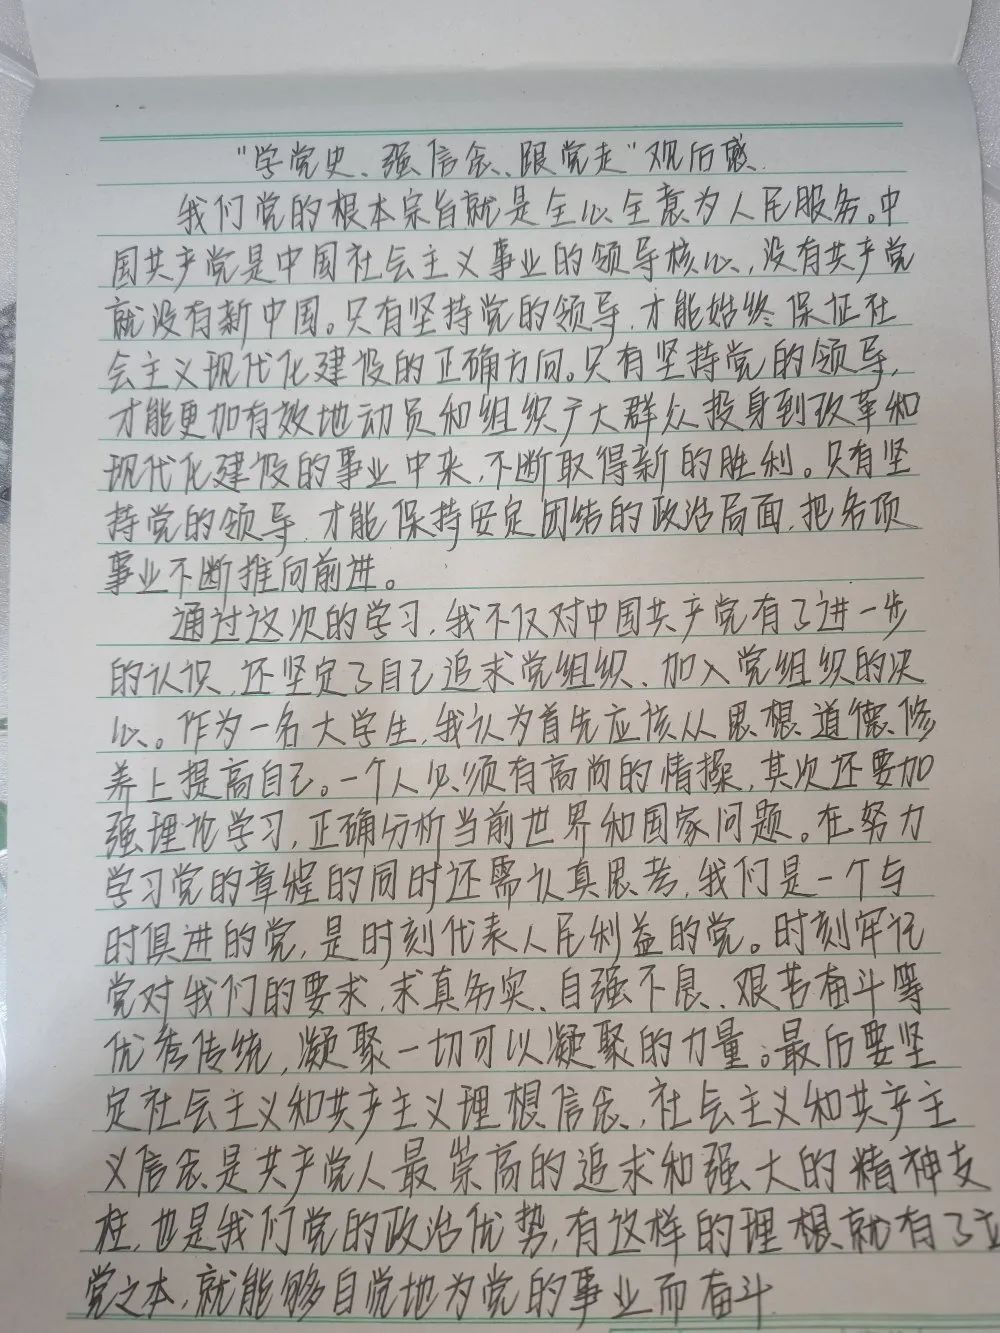 “学党史、强信念、跟党走”观后感
我们党的根本宗旨就是全心全意为人民服务。中
国共产党是中国社会主义事业的领导核心,没有共产党
就没有新中国。只有坚持党的领导,才能始终保证社
会主义现代化建设的正确方向。只有坚持党的领导,
才能更加有效地动员和组织广大群众投身到改革和
现代化建设的事业中来,不断取得新的胜利。只有坚
持党的领导,才能保持安定团结的政治局面,把各项
事业不断推向前进。
通过这次的学习,我不仅对中国共产党有了进一步
的认识,还坚定了自己追求党组织、加入党组织的决
心。作为一名大学生,我认为首先应该从思想道德修
养上提高自己。一个人必须有高尚的情操,其次还要加
强理论学习,正确分析当前世界和国家问题。在努力
学习党的章程的同时还需认真思考,我们是一个与
时俱进的党,是时刻代表人民利益的党。时刻牢记
党对我们的要求,求真务实、自强不息、艰苦奋斗等
优秀传统,凝聚一切可以凝聚的力量。最后要坚
定社会主义和共产主义理想信念,社会主义和共产主
义信念是共产党人最崇高的追求和强大的精神支
柱,也是我们党的政治优势,有这样的理想就有了立
党之本,就能够自觉地为党的事业而奋斗